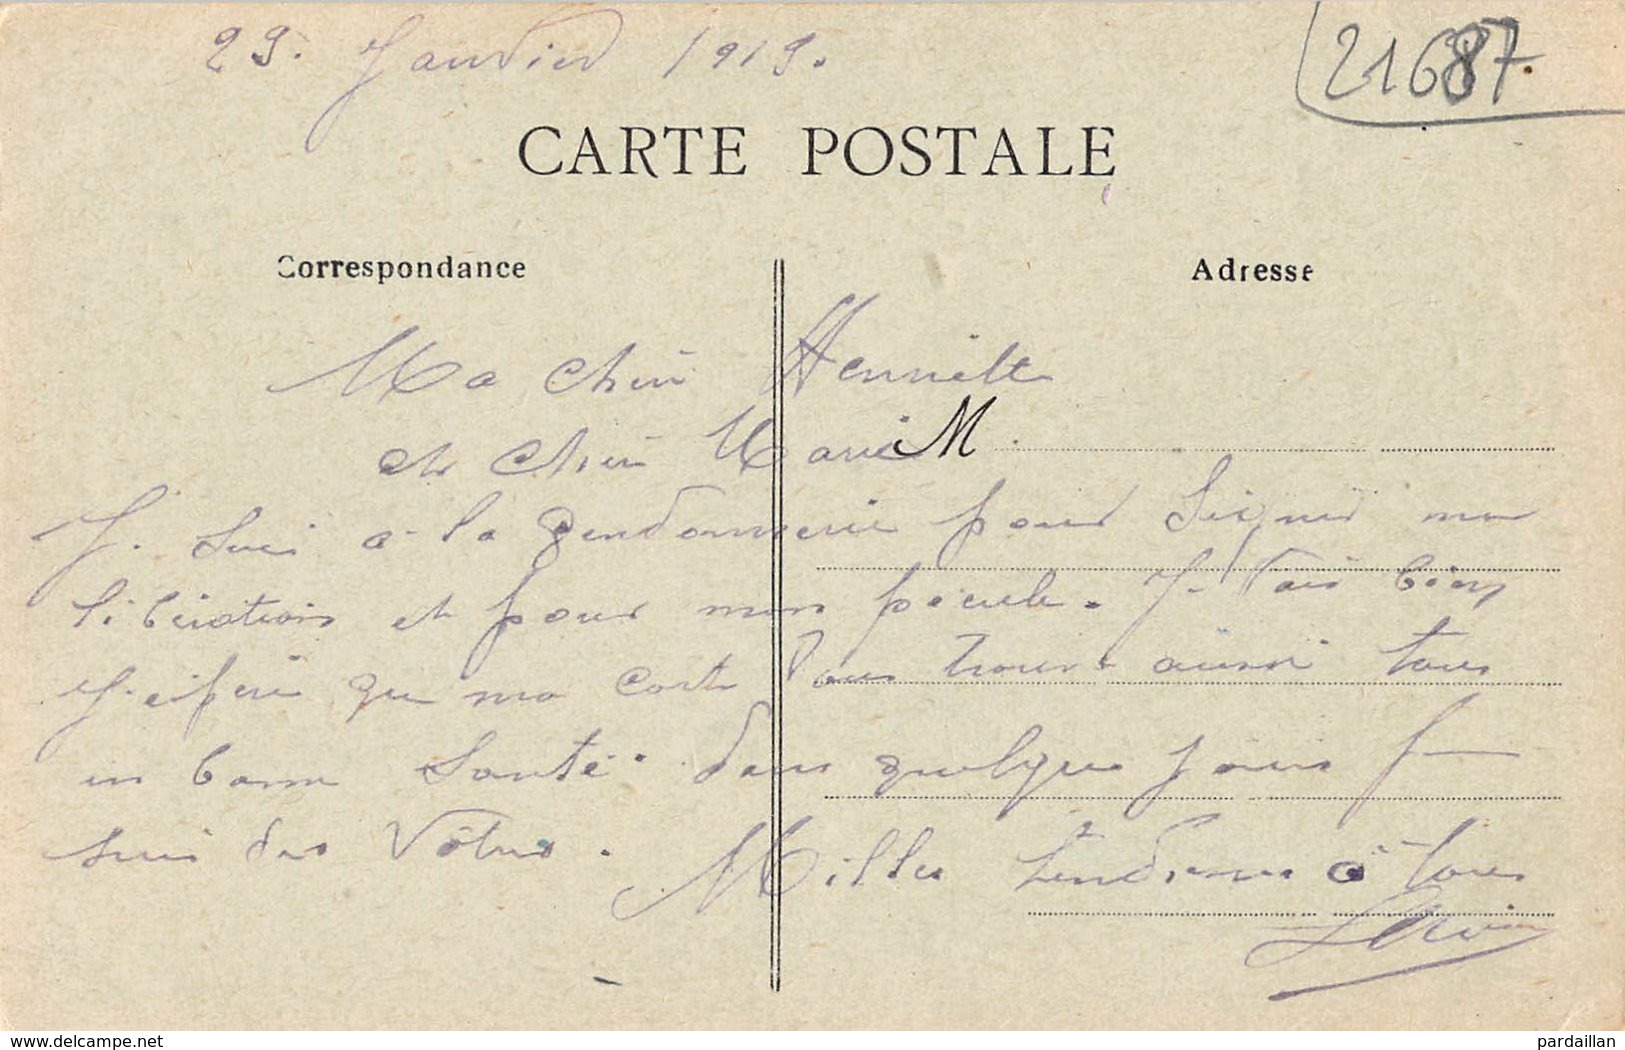 29. Janvier 1919.
21687.
CARTE POSTALE
Correspondance
Adresse
Ma chère Henriette
et chère Marie M.
Je suis a la gendarmerie pour signer ma
libération et pour mon pécule. Je vais bien
J'espère que ma carte vous trouve aussi tous
en bonne santé. dans quelques jours je
suis des Vôtres. Milles tendresses à tous
delcampe.net
pardaillan